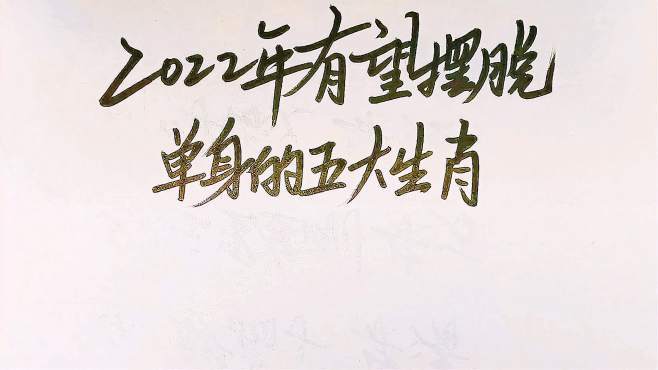 2022年有望摆脱
单身的五大生肖